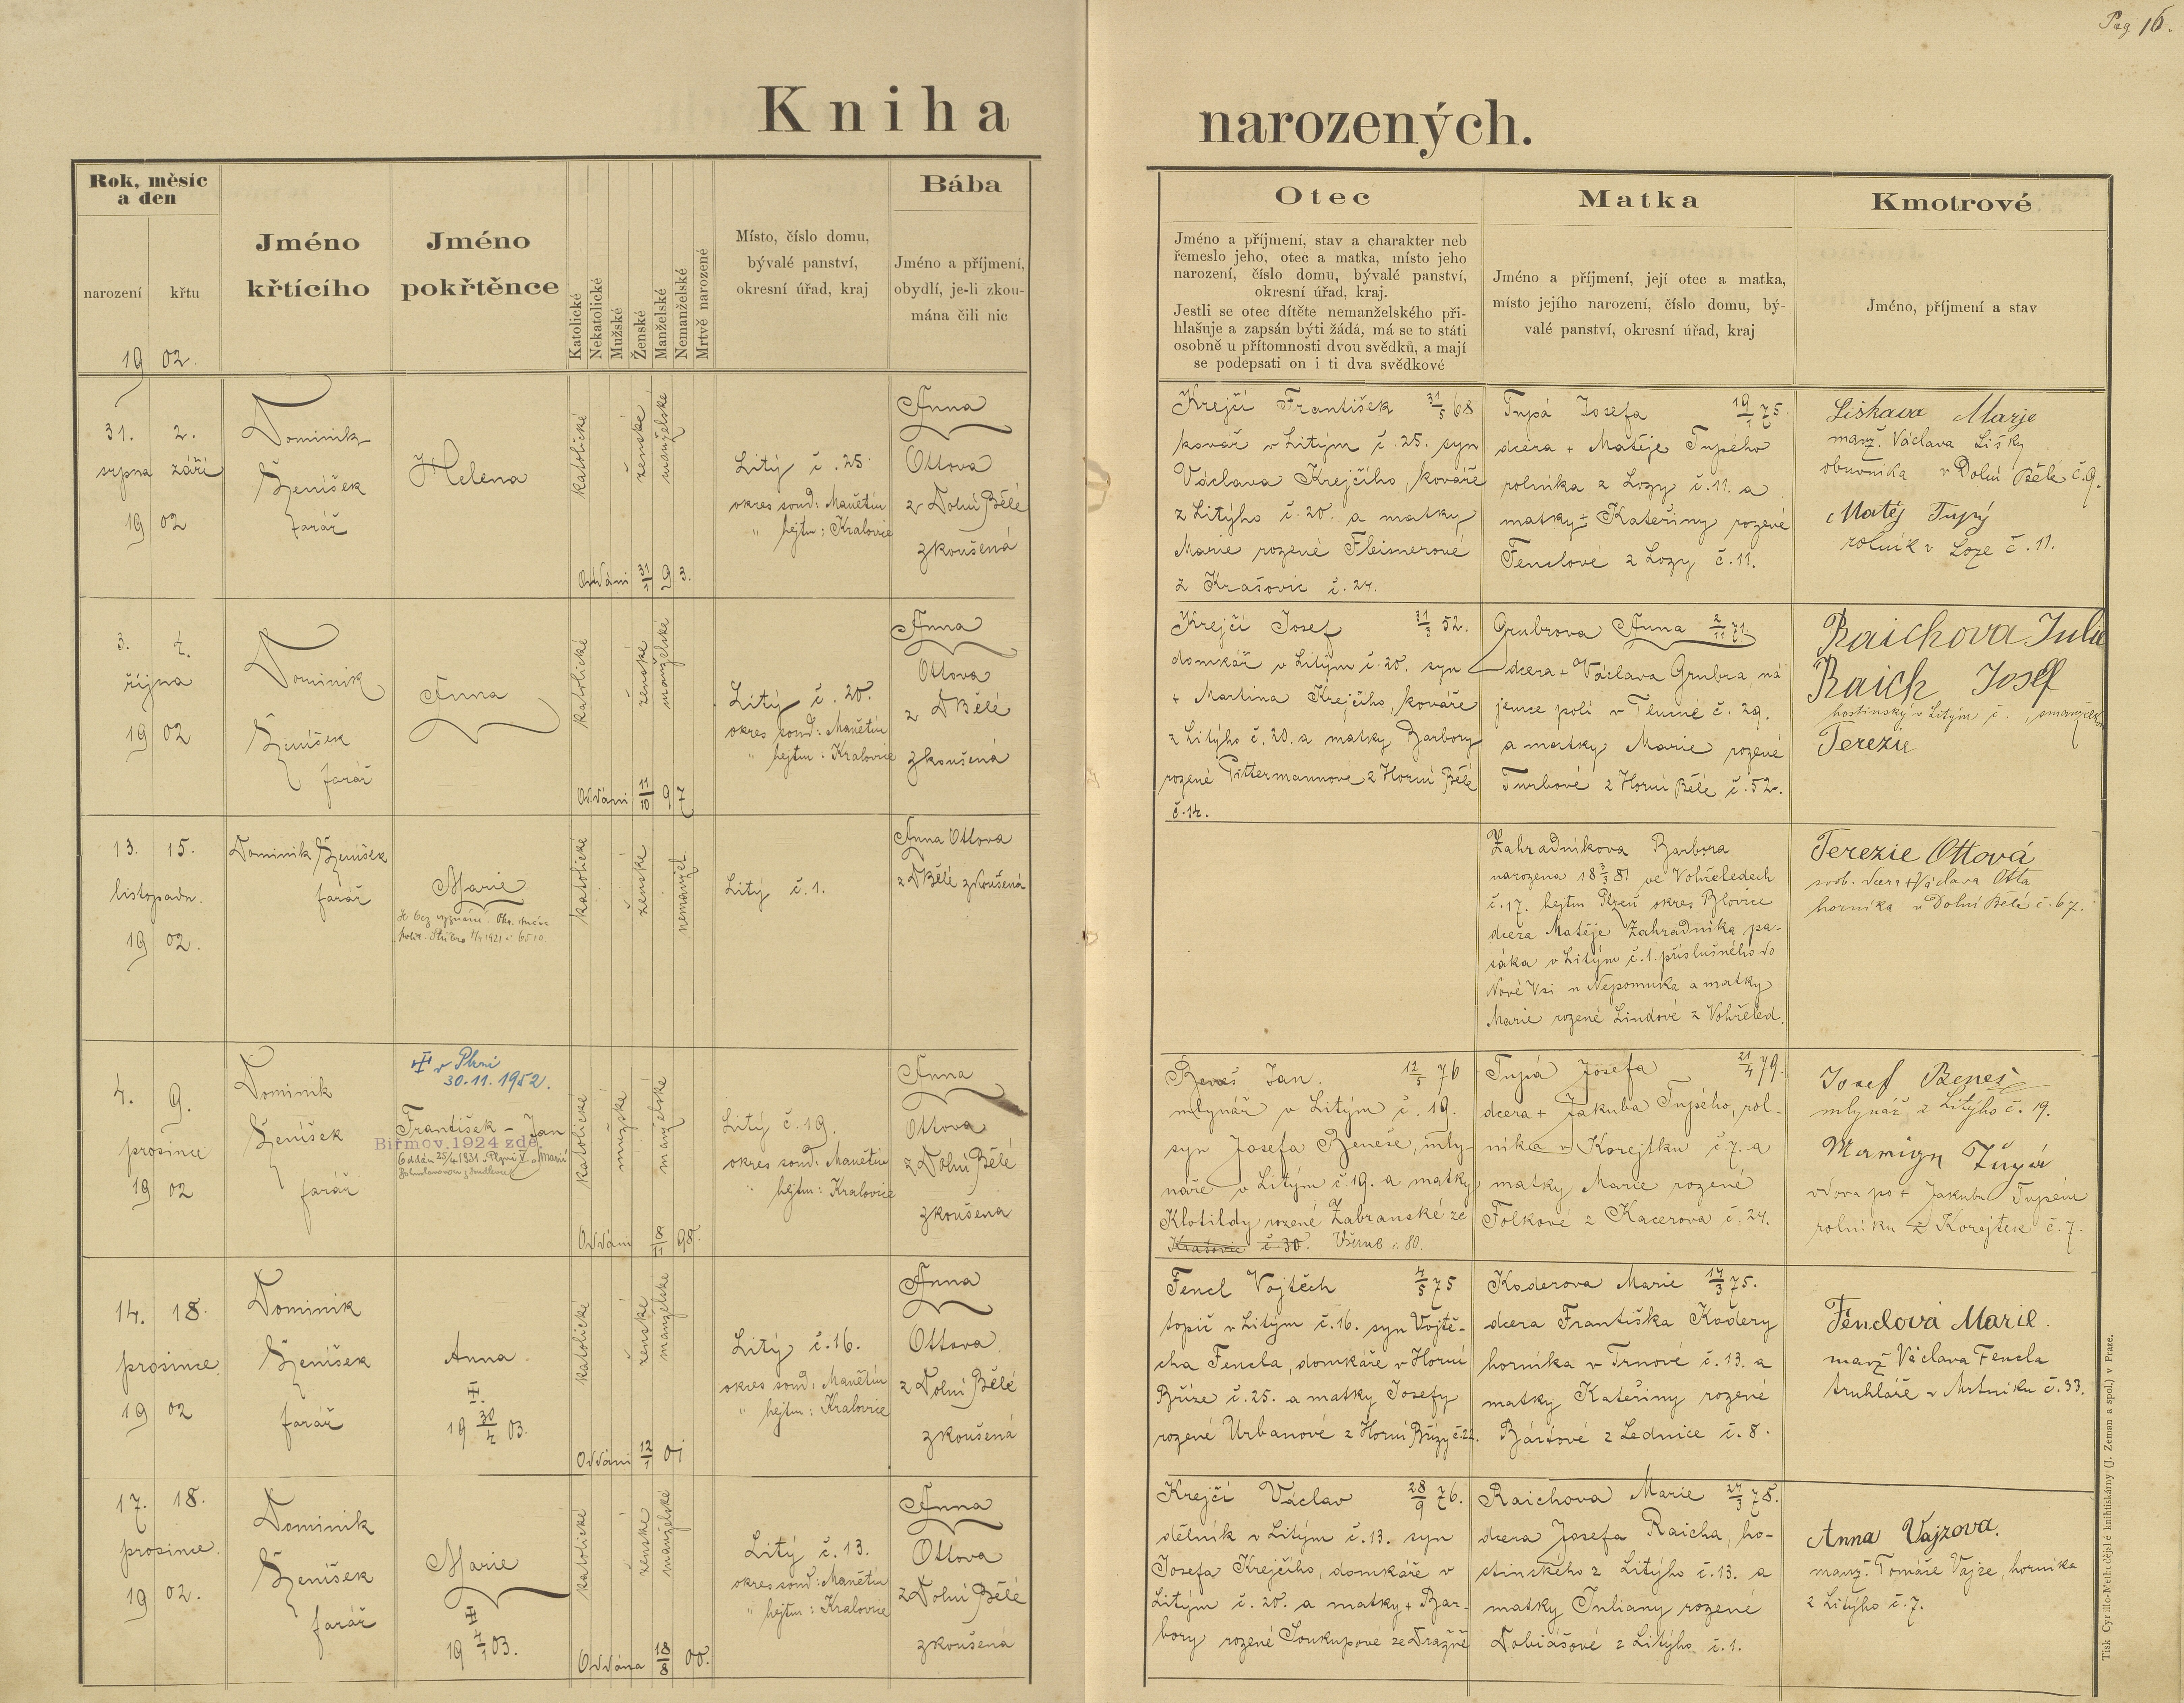 Pag 16.
Kniha
narozených.
Rok, měsíc
a den
narození
křtu
19 02.
Jméno
křtícího
Jméno
pokřtěnce
Katolické
Nekatolické
Mužské
Ženské
Manželské
Nemanželské
Mrtvě narozené
Místo, číslo domu,
bývalé panství,
okresní úřad, kraj
Bába
Jméno a příjmení,
obydlí, je-li zkou-
mána čili nic
Otec
Jméno a příjmení, stav a charakter neb
řemeslo jeho, otec a matka, místo jeho
narození, číslo domu, bývalé panství,
okresní úřad, kraj.
Jestli se otec dítěte nemanželského při-
hlašuje a zapsán býti žádá, má se to státi
osobně u přítomnosti dvou svědků, a mají
se podepsati on i ti dva svědkové
Matka
Jméno a příjmení, její otec a matka,
místo jejího narození, číslo domu, bý-
valé panství, okresní úřad, kraj
Kmotrové
Jméno, příjmení a stav
31. 2.
srpna září
19 02
Dominik
Ženíšek
farář
Helena
katolické
ženské
manželské
Oddáni 31/1 29 3.
Litý č. 25.
okres soud: Manětín
" hejtm: Kralovice
Anna
Ottova
z Dolní Bělé
zkoušená
Krejčí František 31/5 68
kovář v Litým č. 25. syn
Václava Krejčího, kováře
z Litýho č. 20. a matky
Marie rozené Fleisnerové
z Krašovic č. 24.
Tupá Josefa 19/1 75.
dcera + Matěje Tupého
rolníka z Lozy č. 11. a
matky + Kateřiny rozené
Fenclové z Lozy č. 11.
Liškava Marje
manž. Václava Lišky
obuvníka v Dolní Bělé č. 9.
Matěj Tupý
rolník v Loze č. 11.
3. 4.
října
19 02
Dominik
Ženíšek
farář
Anna
katolické
ženské
manželské
Oddáni 97
Litý č. 20.
okres soud: Manětín
" hejtm: Kralovice
Anna
Ottova
z D Bělé
zkoušená
Krejčí Josef 31/3 52.
domkář v Litým č. 20. syn
+ Martina Krejčího, kováře
z Litýho č. 20. a matky Barbory
rozené Pittermannové z Horní Bělé
č. 14.
Grubrova Anna 2/11 71.
dcera + Václava Grubra ná
jemce polí v Tlucné č. 29.
a matky Marie rozené
Turbové z Horní Bělé č. 52.
Raichova Julie
Raich Josef
hostinský v Litým č. , s manželkou
Terezie
13. 15.
listopadu.
19 02.
Dominik Ženíšek
farář
Marie
Je bez vyznání.
polit. Stříbro 1921 č. 6510.
katolické
ženské
nemanžel.
Litý č. 1.
Anna Ottova
z D Bělé zkoušená
Zahradníkova Barbora
narozena 18 3/3 81 ve Vohřeledech
č. 17. hejtm Plzeň okres Blovice
dcera Matěje Zahradníka pa-
sáka v Litým č. 1. příslušného do
Nové Vsi u Nepomuka a matky
Marie rozené Lindové z Vohřeled.
Terezie Ottová
svob. dcera + Václava Otta
horníka v Dolní Bělé č. 67.
4. 9.
prosince
19 02
Dominik
Ženíšek
farář
v Plzni
30.11.1952.
František - Jan
Biřmov. 1924 zde.
Oddán 25/4 1931 v Plzni s Marií
katolické
mužské
manželské
Oddáni 98.
Litý č. 19.
okres soud: Manětín
" hejtm: Kralovice
Anna
Ottova
z Dolní Bělé
zkoušená
Beneš Jan. 12/5 76
mlynář v Litým č. 19.
syn Josefa Beneše, mly-
náře v Litým č. 19. a matky
Klotildy rozené Zabranské ze
Krašovic č. 30. Všerub č. 80.
Tupá Josefa 21/4 79.
dcera + Jakuba Tupého, rol-
níka v Korejtku č. 7. a
matky Marie rozené
Folkové z Kacerova č. 24.
Josef Beneš
mlynář z Litýho č. 19.
Marign Tupá
vdova po + Jakubu Tupém
rolníku z Korejtek č. 7.
14. 18.
prosince
19 02
Dominik
Ženíšek
farář
Anna.
19 30/4 03.
katolické
ženské
manželské
Oddáni 12/1 01
Litý č. 16.
okres soud: Manětín
" hejtm: Kralovice
Anna
Ottova
z Dolní Bělé
zkoušená
Fencl Vojtěch 4/5 75
topič v Litým č. 16. syn Vojtě-
cha Fencla, domkáře v Horní
Bříze č. 25. a matky Josefy
rozené Urbanové z Horní Břízy č. 22.
Koderova Marie 17/3 75.
dcera Františka Kodery
horníka v Trnové č. 13. a
matky Kateřiny rozené
Bártové z Lednice č. 8.
Fenclová Marie.
manž Václava Fencla
truhláře v Mrtníku č. 33.
17. 18.
prosince.
19 02.
Dominik
Ženíšek
farář
Marie
19 4/1 03.
katolické
ženské
manželské
Oddána 18/8 00.
Litý č. 13.
okres soud: Manětín
" hejtm: Kralovice
Anna
Ottova
z Dolní Bělé
zkoušená
Krejčí Václav 28/9 76.
dělník v Litým č. 13. syn
Josefa Krejčího, domkáře v
Litým č. 20. a matky + Bar-
bory rozené Soukupové ze Dražně
Raichova Marie 24/3 78.
dcera Josefa Raicha, ho-
stinského z Litýho č. 13. a
matky Juliany rozené
Tobiášové z Litýho č. 1.
Anna Vajzova.
manž. Tomáše Vajze, horníka
z Litýho č. 7.
Tisk Cyrillo-Methodějské knihtiskárny (J. Zeman a spol.) v Praze.